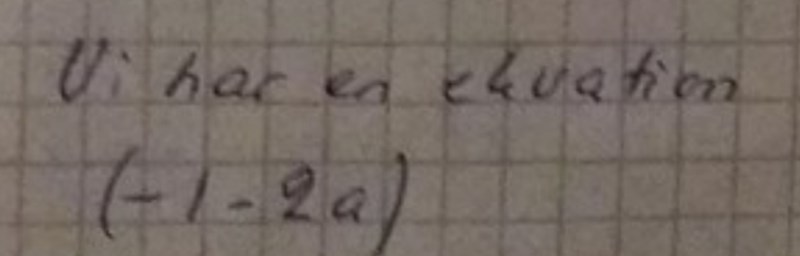 Vi har en ekvation
(-1-2a)